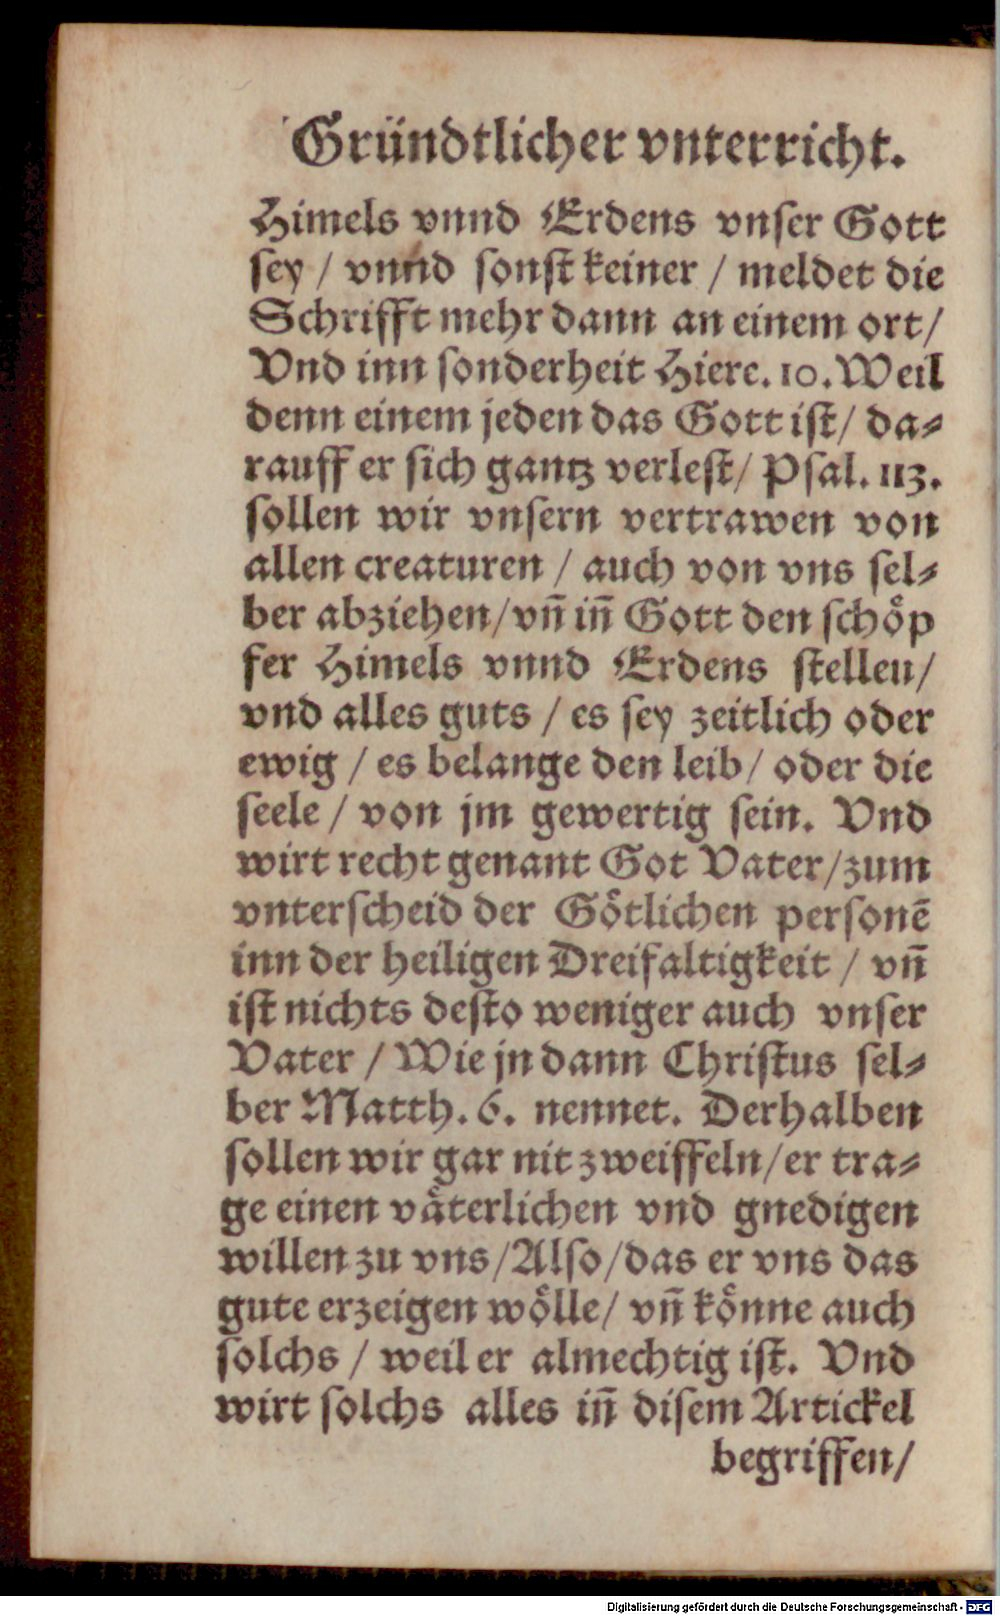 Gründtlicher vnterricht.
Himels vnnd Erdens vnser Gott
sey / vnnd sonst keiner / meldet die
Schrifft mehr dann an einem ort/
Vnd inn sonderheit Hiere. 10. Weil
denn einem jeden das Gott ist/ da⸗
rauff er sich gantz verlest/ Psal. 113.
sollen wir vnsern vertrawen von
allen creaturen / auch von vns sel⸗
ber abziehen/vn̄ in̄ Gott den schoͤp
fer Himels vnnd Erdens stelleu/
vnd alles guts / es sey zeitlich oder
ewig / es belange den leib/ oder die
seele / von jm gewertig sein. Vnd
wirt recht genant Got Vater/zum
vnterscheid der Goͤtlichen personē
inn der heiligen Dreifaltigkeit / vn̄
ist nichts desto weniger auch vnser
Vater / Wie jn dann Christus sel⸗
ber Matth. 6. nennet. Derhalben
sollen wir gar nit zweiffeln/er tra⸗
ge einen vaͤterlichen vnd gnedigen
willen zu vns/Also/das er vns das
gute erzeigen woͤlle/ vn̄ koͤnne auch
solchs / weil er almechtig ist. Vnd
wirt solchs alles in̄ disem Artickel
begriffen/
Digitalisierung gefördert durch die Deutsche Forschungsgemeinschaft - DFG